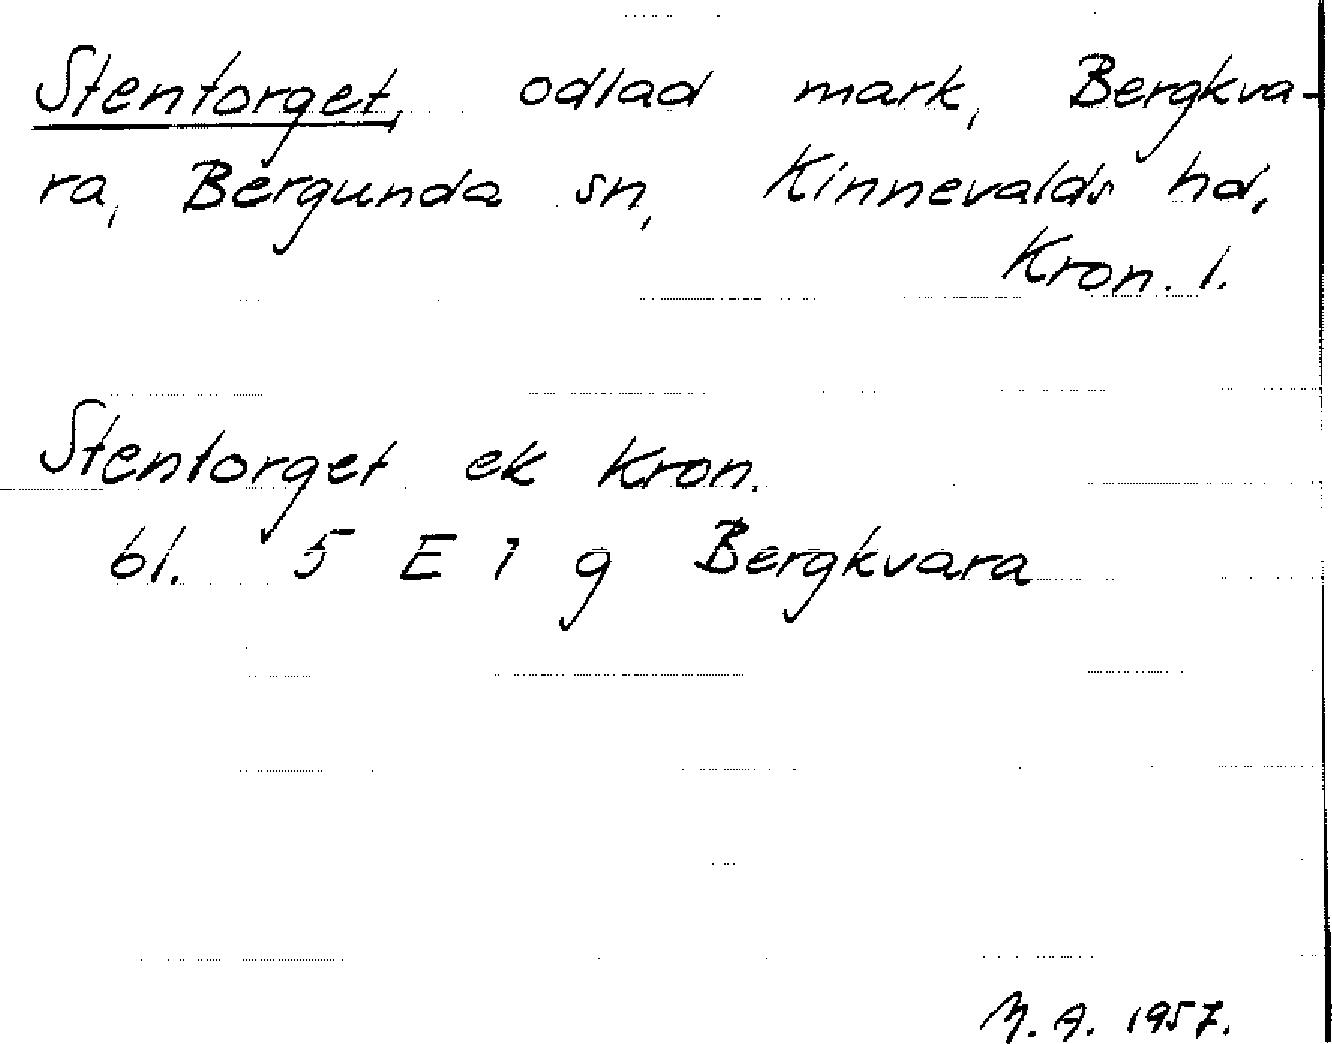 Stentorget, odlad mark, Bergkva-
ra, Bergunda sn, Kinnevalds hd,
Kron. l.
Stentorget ek Kron.
bl. 5 E 1 g Bergkvara
M. A. 1957.